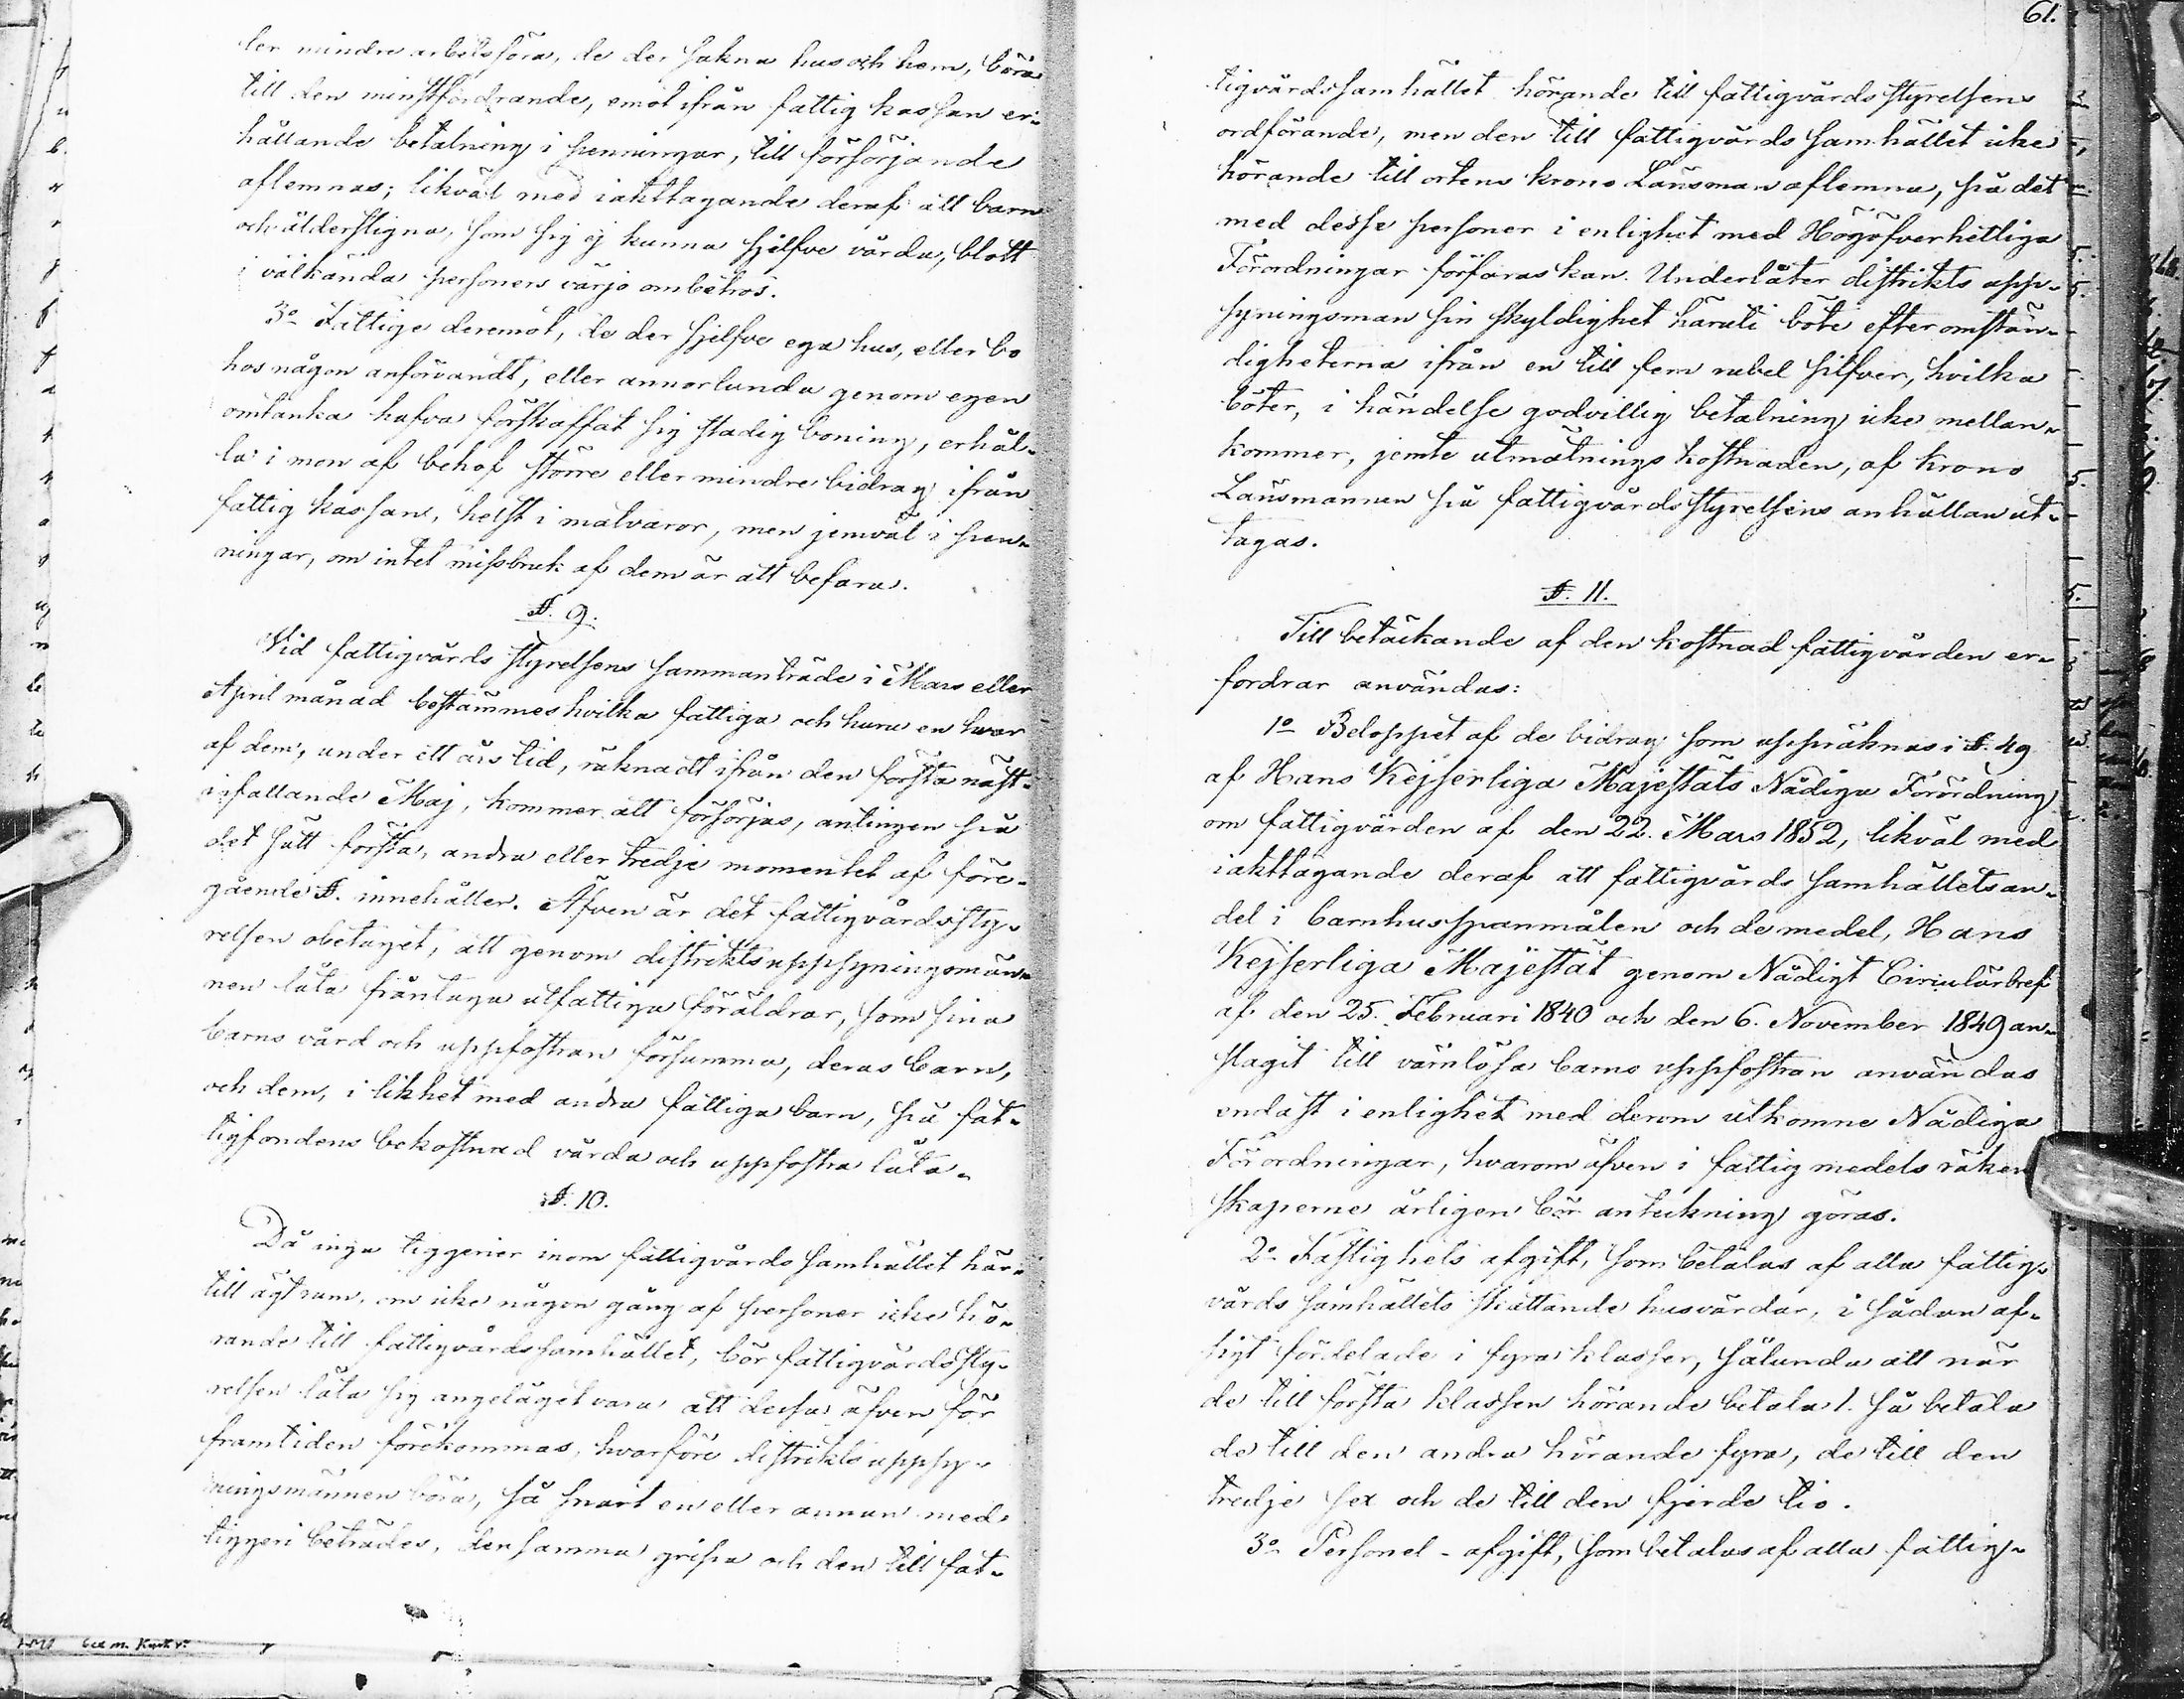 ler mindre arbetsföra, de der sakna hus och hem, böra
till den minstfordrande, emot ifrån fattig kassan er-
hållande betalning i penningar, till försörjande
aflemnas; likväl med iakttagande deraf att barn
och ålderstigna, som sig ej kunna sjelfve vårda, blott
i välkända personers värjo ombetros.
3o Fattige deremot, de der sjelfve ega hus, eller bo
hos någon anförvandt, eller annorlunda genom egen
omtanka hafva förskaffat sig stadig boning, erhål-
la i mon af behof större eller mindre bidrag ifrån
fattig kassan, helst i matvaror, men jemväl i pen-
ningar, om intet missbruk af dem är att befara.
§. 9.
Vid fattigvårds styrelsens sammanträde i Mars eller
April månad bestämmes hvilka fattiga och huru en hvar
af dem, under ett års tid, räknadt ifrån den första näst-
infallande Maj, kommer att försörjas, antingen på
det sätt första, andra eller tredje momentet af före-
gående §. innehåller. Äfven är det fattigvårdssty-
relsen obetaget, att genom distriktsuppsyningsmän-
nen låta fråntaga utfattiga föräldrar, som sina
barns vård och uppfostran försumma, deras barn,
och dem, i likhet med andra fattiga barn, på fat-
tigfondens bekostnad vårda och uppfostra låta.
§. 10.
Då inga tiggerier inom fattigvårds samhället här-
till ägt rum, om icke någon gång af personer icke hö-
rande till fattigvårdssamhället, bör fattigvårdssty-
relsen låta sig angeläget vara att dessa äfven för
framtiden förekommas, hvarföre distrikts uppsy-
ningsmännen böra, så snart en eller annan med
tiggeri beträdes, densamma gripa och den till fat-
61.
tigvårdssamhället hörande till fattigvårds styrelsens
ordförande, men den till fattigvårds samhället icke
hörande till ortens krono Länsman aflemna, på det
med desse personer i enlighet med Högöfverhetliga
Förordningar förfaras kan. Underlåter distrikts upp-
syningsman sin skyldighet häruti böte efter omstän-
digheterna ifrån en till fem rubel silfver, hvilka
böter, i händelse godvillig betalning icke mellan-
kommer, jemte utmätnings kostnaden, af krono
Länsmannen på fattigvårds styrelsens anhållan ut-
tagas.
§. 11.
Till betäckande af den kostnad fattigvården er-
fordrar användas:
1o Beloppet af de bidrag som uppräknas i §. 49
af Hans Kejserliga Majestäts Nådiga Förordning
om fattigvården af den 22. Mars 1852, likväl med
iakttagande deraf att fattigvårds samhällets an-
del i barnhusspanmålen och de medel, Hans
Kejserliga Majestät genom Nådigt Circulärbref
af den 25. Februari 1840 och den 6. November 1849 an-
slagit till värnlösa barns uppfostran användas
endast i enlighet med derom utkomne Nådiga
Förordningar, hvarom äfven i fattig medels räken
skaperne årligen bör anteckning göras.
2o Fastighets afgift, som betalas af alla fattig-
vårds samhällets skattande husvärdar, i sådan af-
sigt fördelade i fyra klasser, sålunda att när
de till första klassen hörande betala 1. så betala
de till den andra hörande fyra, de till den
tredje sex och de till den fjerde tio.
3o Personel-afgift, som betalas af alla fattig-